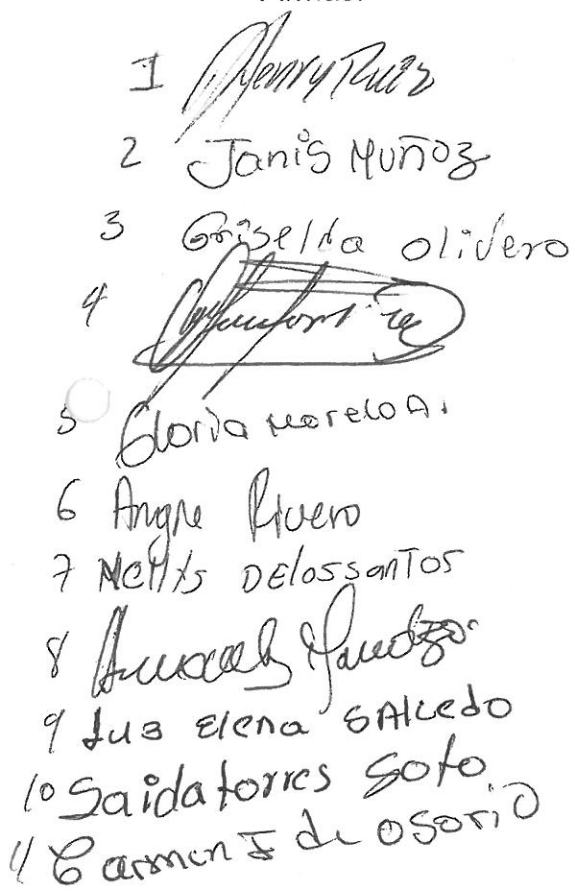 1 Henry Ruiz
2 Janis Muñoz
3 Griselda olivero
4
5 Gloria Morelo A.
6 Angie Rivero
7 Nellys DElossanTos
8
9 Luz Elena SAlcedo
10 Saida torres Soto
11 Carmen I de Osorio